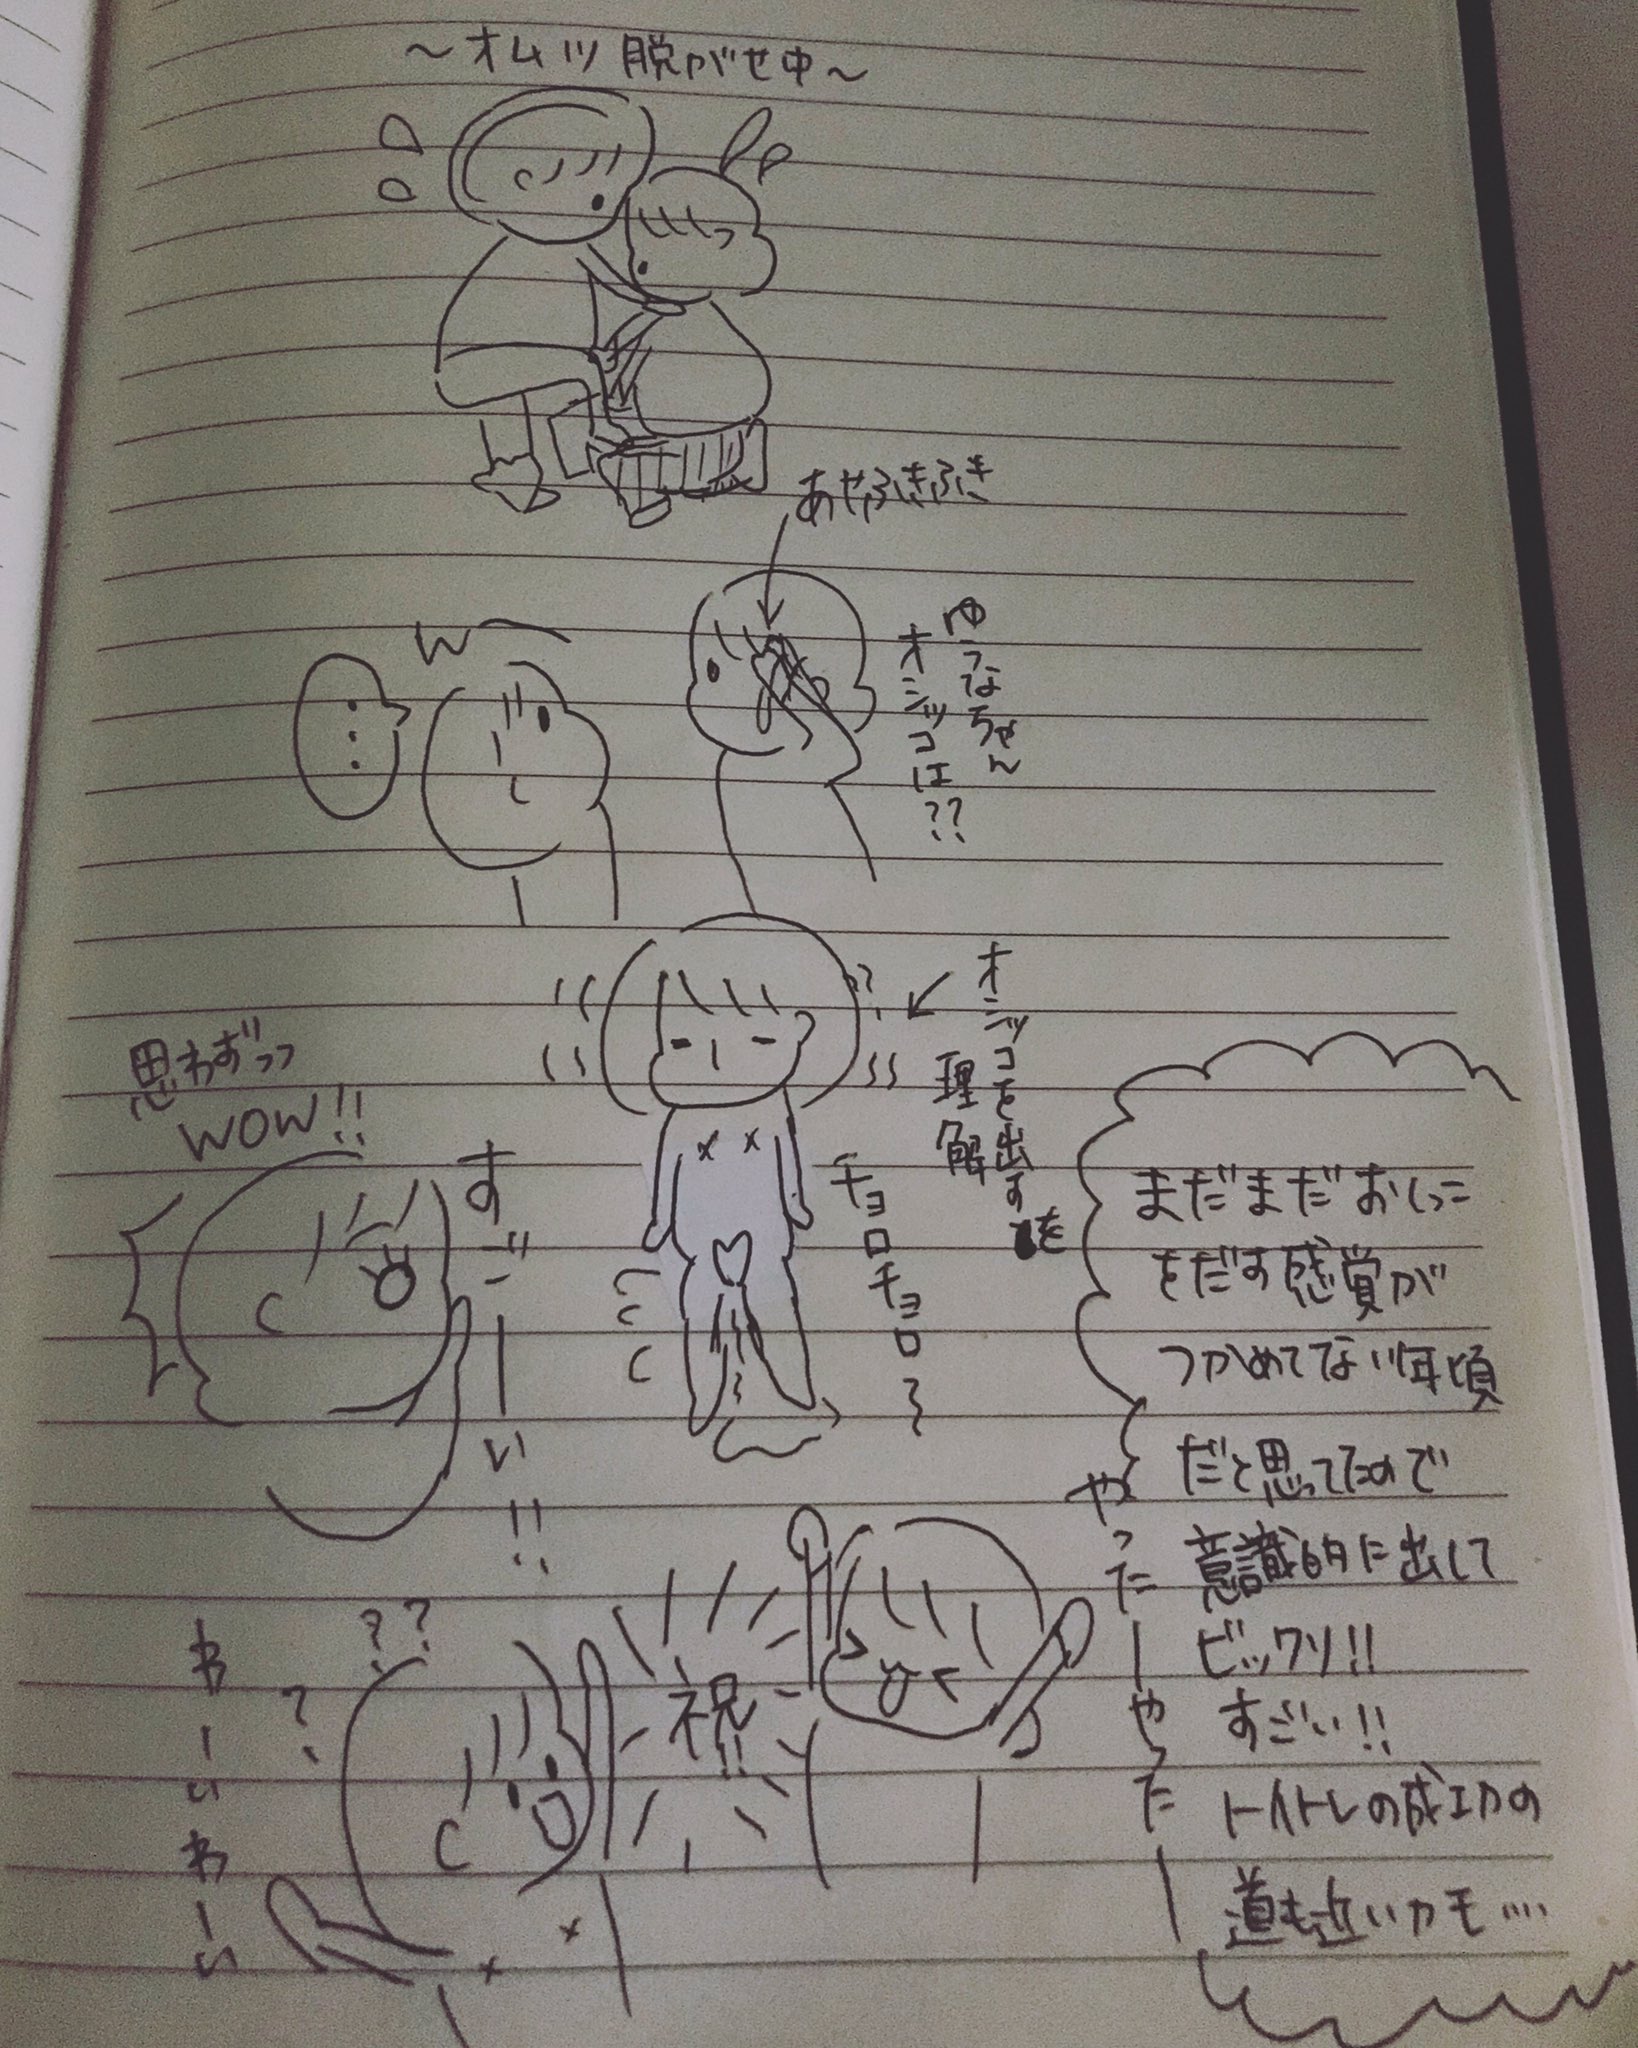 〜オムツ脱がせ中〜
あやふきふき
ゆうなちゃん
オシッコは??
オシッコを出すを
理解
思わずっっ
WOW!!
すごーい!!
チョロチョロ〜
まだまだおしっこ
をだす感覚が
つかめてない年頃
だと思ってたので
意識的に出して
ビックリ!!
すごい!!
トイトレの成功の
道も近いカモ....
やったーやったー
祝!!
???
わーいわーい